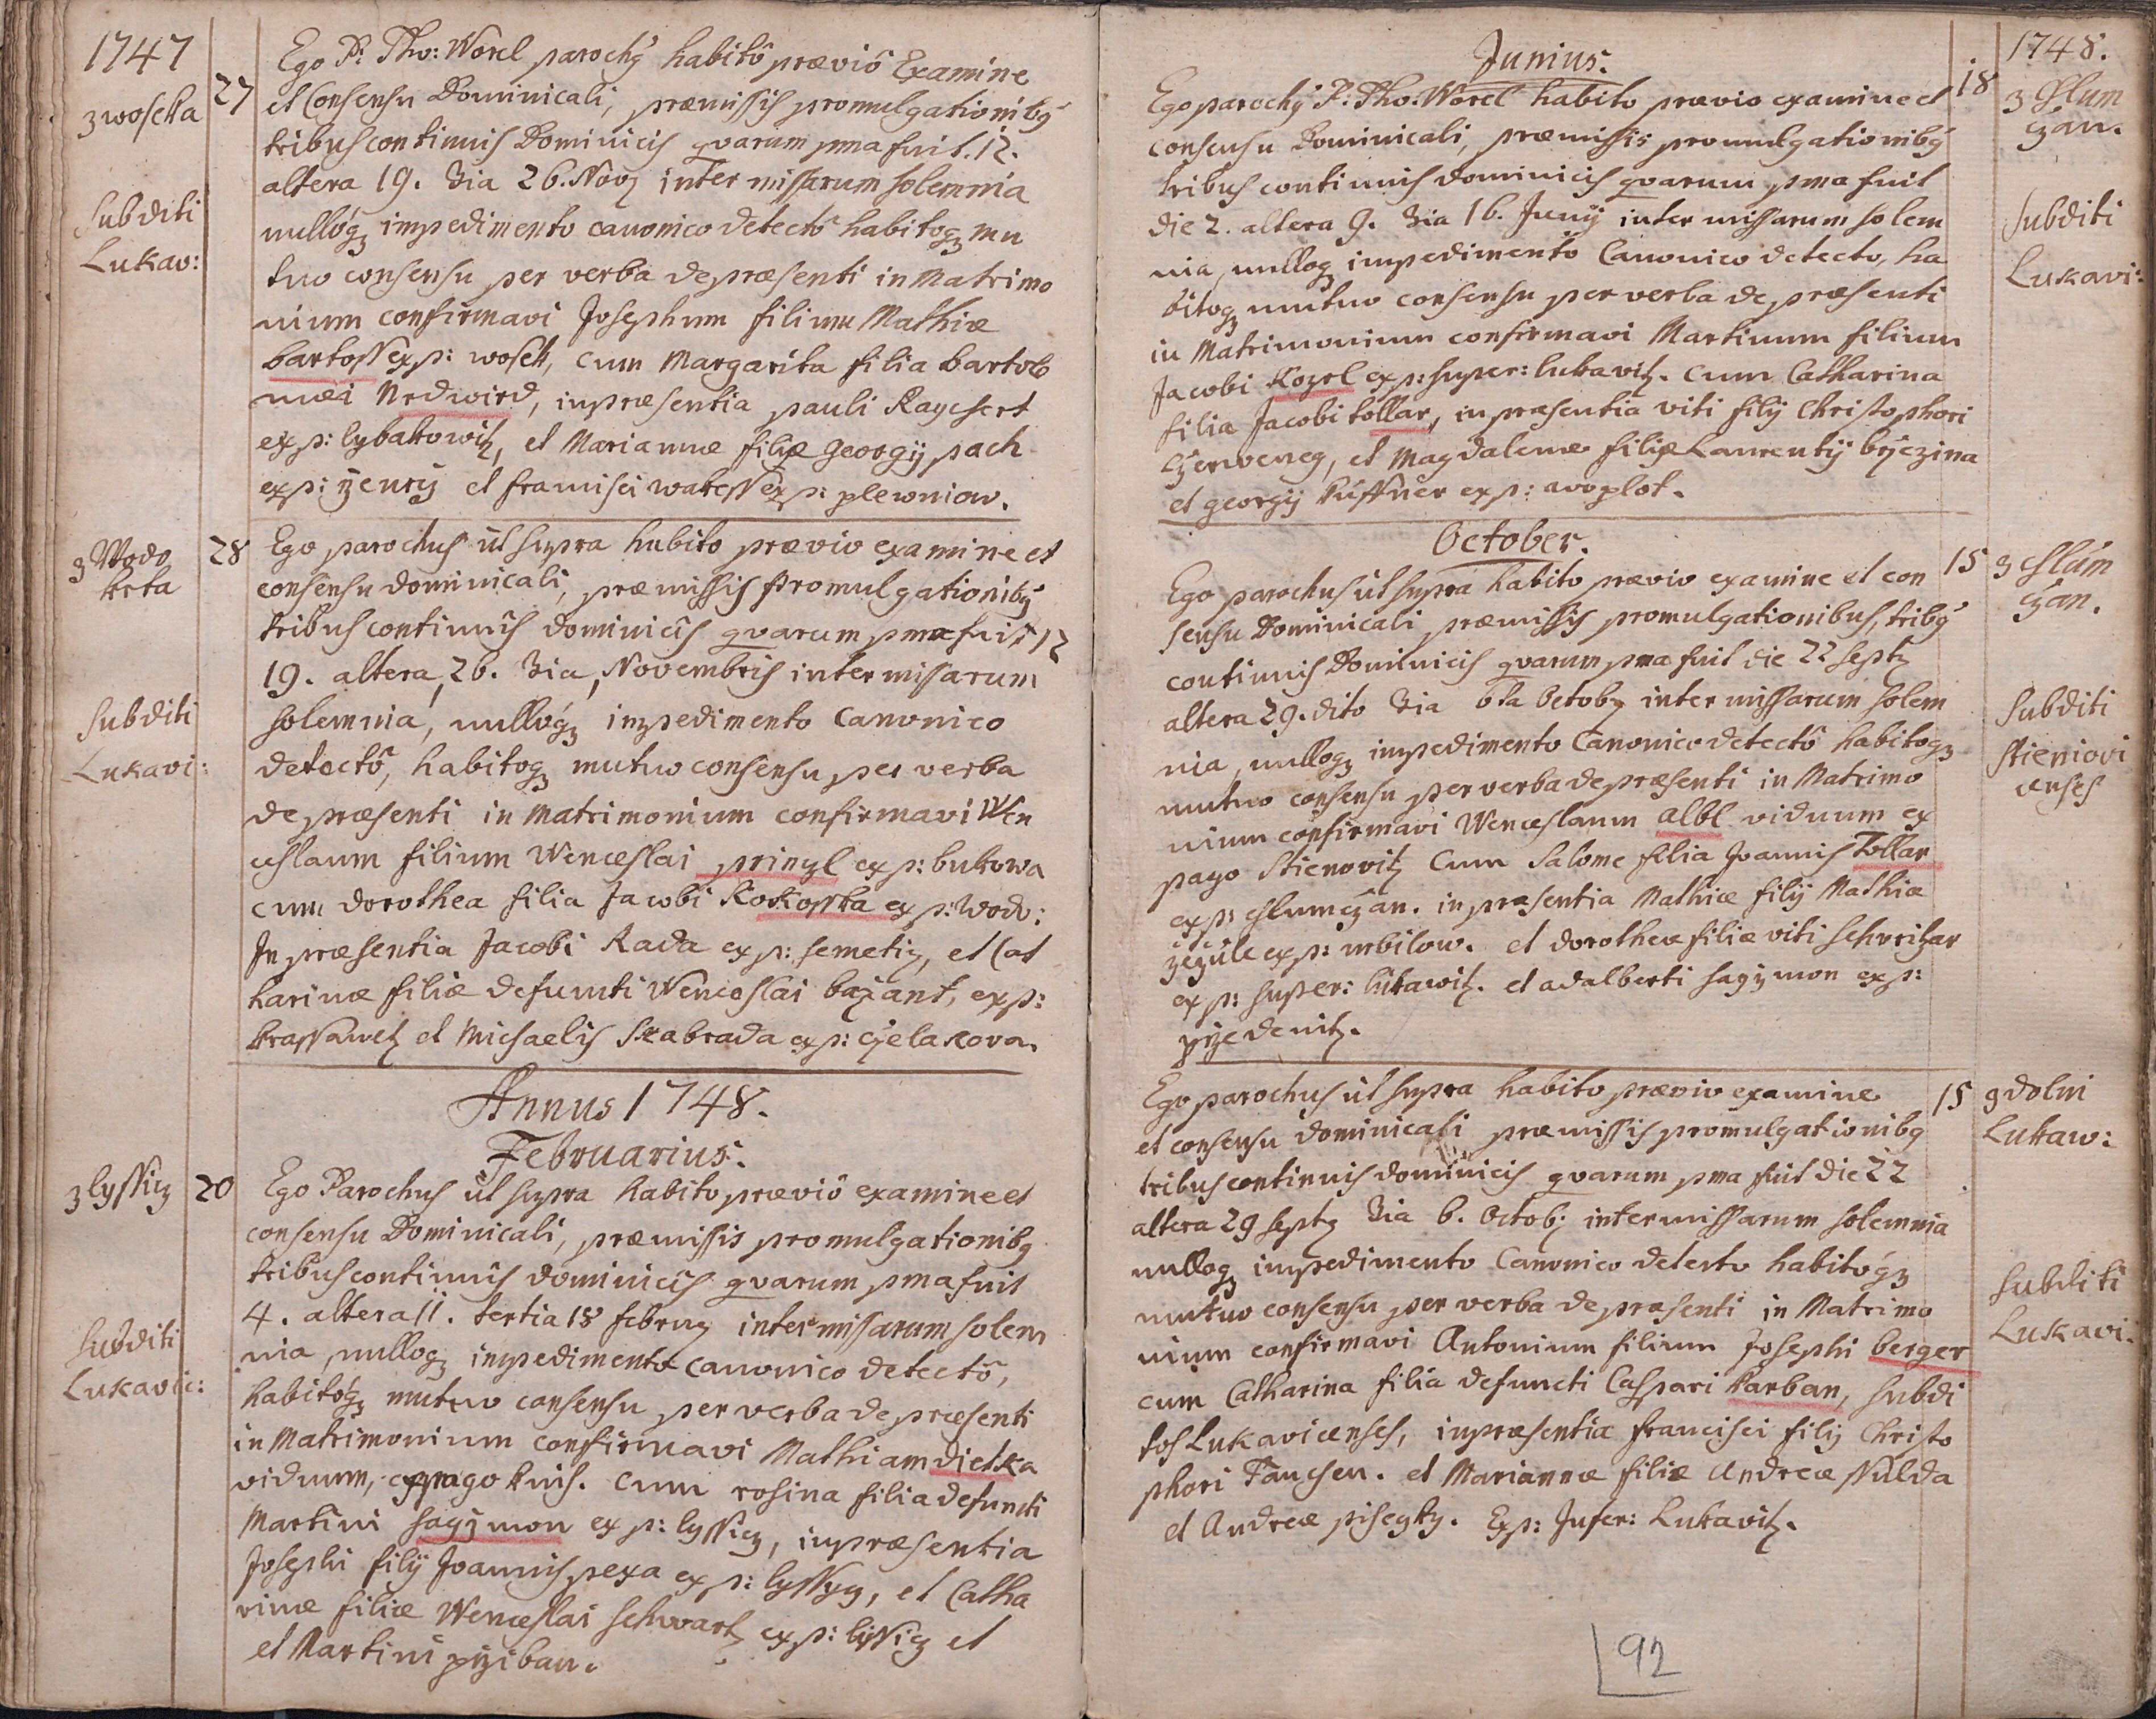 1747
Ego P: Tho: Worel parochꝰ habitô præviô Examine
z woseka 27 et Consensu Dominicali, præmissis promulgationibꝰ
tribus continuis Dominicis qvarum pma fuit. 12.
altera 19. 3ia 26. Novꝫ inter missarum solemnia
Subditi
nullóqꝫ impedimento canonico detectô habitoqꝫ mu
Lukav:
tuo consensu per verba de præsenti in Matrimo
nium confirmavi Josephum filium Mathiæ
bartoss ex p: wosek, cum Margarita filia bartolo
mæi Nedwied, in præsentia pauli
ex p: lybakowitz, et Mariannæ filiæ georgij pach
ex p: et francisci waress ex p: plewniow.
z Wodo 28 Ego parochus út supra habito prævio examine et
krta consensu dominicali, præmissis promulgationibꝰ
tribus continuis dominicis qvarum pma fuit 12
19. altera, 26. 3ia, Novembris inter missarum
Subditi
solemnia, nullóqꝫ impedimento Canonico
Lukavi:
detectô, habitoqꝫ mutuo consensu per verba
de præsenti in Matrimonium confirmavi Wen
ceslaum filium Wenceslai prinzl ex p: bukowa
cum dorothea filia Jacobi Kokosska ex p: wodo:
In præsentia Jacobi Rada ex p: semetiz, et Cat
harinæ filiæ defuncti Wenceslai bazant, ex p:
krassawetz et Michaelis Skabrada ex p: czelakova.
Annus 1748.
Februarius.
z lyssicz 20 Ego Parochus út supra habito præviô examine et
consensu Dominicali, præmissis promulgationibꝰ
tribus continuis dominicis qvarum pma fuit
4. altera 11. tertia 18 februꝫ inter missarum solem
Subditi
nia, nulloqꝫ impedimento canonico detectô,
Lukavic:
habitóqꝫ mutuo consensu per verba de præsenti
in Matrimonium confirmavi Mathiam dietka
viduum, ex pago knis. cum rosina filia defuncti
Martini sagzmon ex p: lyssicz, in præsentia
Josephi filij Joannis pexa ex p: lyssycz, et Catha
rinæ filiæ Wenceslai schwartz ex p: lyssicz et
et Martini prziban.
1748.
Junius.
Ego parochꝰ P: Tho: Worel habito prævio examine et 18 z Chlum
consensu Dominicali, præmissis promulgationibꝰ czan.
tribus continuis dominicis qvarum pma fuit
die 2. altera 9. 3ia 16. Junij inter missarum solem
Subditi
nia, nulloqꝫ impedimentô Canonico detecto, ha
Lukavi:
bitoqꝫ mutuo consensu per verba de præsenti
in Matrimonium confirmavi Martinum filium
Jacobi Kozel ex p: super: lukavitz. cum Catharina
filia Jacobi tollar, in præsentia viti filij Christophori
czerveneg, et Magdalenæ filiæ Laurentij brzezina
et georgij Kuffner ex p: avoplot.
October.
Ego parochus út supra habito prævio examine et con 15 z Chlum
sensu Dominicali præmissis promulgationibus, tribꝰ czan.
continuis Dominicis qvarum pma fuit die 22 septꝫ
altera 29. dito 3ia 6ta Octobꝫ inter missarum solem
Subditi
nia, nulloqꝫ impedimento Canonico detectô habitoqꝫ
Stieniovi
mutuo consensu per verba de præsenti in Matrimo
censes
nium confirmavi Wenceslaum albl viduum ex
pago Stienovitz cum Salome filia Joannis Tollar
ex p: chlumczan. in præsentia Mathiæ filij Mathiæ
zezúle ex p: nebilow. et dorotheæ filiæ viti schwitzar
ex p: super: lukawitz. et adalberti sagzmon ex p:
przedenitz.
Ego parochus út supra habito prævio examine 15 z dolni
et consensu dominicali præmissis promulgationibꝰ Lukaw:
tribus continuis dominicis qvarum pma fuit die 22
altera 29 septꝫ 3ia 6. Octob: inter missarum solemnia
nulloqꝫ impedimento Canonico detecto habitóqꝫ
Subditi
mutuo consensu per verba de præsenti in Matrimo
Lukavi.
nium confirmavi Antonium filium Josephi berger
cum Catharina filia defuncti Caspari karban, subdi
tos Lukavicenses, in præsentia francisci filij Christo
phori Tauchen. et Mariannæ filiæ Andreæ Nulda
et Andreæ pisegky. Ex p: Infer: Lukavitz.
92